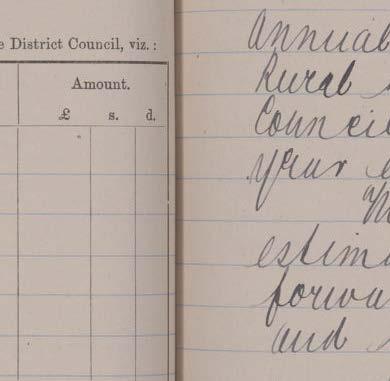 e District Council, viz.:
Amount.
£ s. d.
Annual
Rural
Council
year e
estima
forwa
and